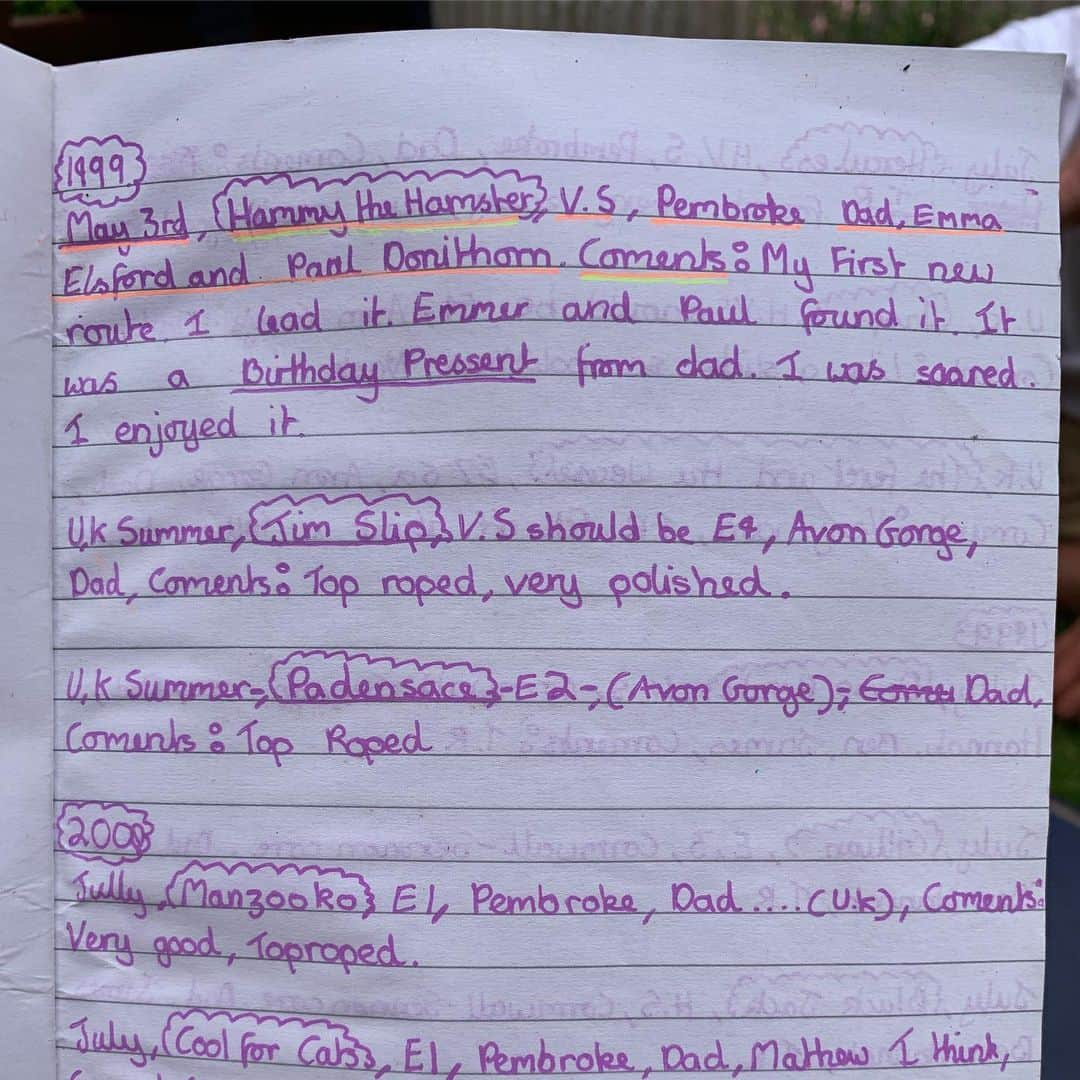 1999
May 3rd, {Hammy the Hamster}, V.S, Pembroke Dad, Emma
Elsford and Paul Donithorn. Coments: My First new
route I lead it. Emmer and Paul found it. It
was a Birthday Pressent from dad. I was scared.
I enjoyed it.
U.K Summer, {Jim Slip}, V.S should be E4, Avon Gorge,
Dad, Coments: Top roped, very polished.
U.K Summer-, {Padensace}-E2-, (Avon Gorge), Dad,
Coments: Top Roped
2000
Jully, {Manzooko} E1, Pembroke, Dad .... (U.K), Coments:
Very good, Toproped.
July, {Cool for Cats}, E1, Pembroke, Dad, Mathow I think,